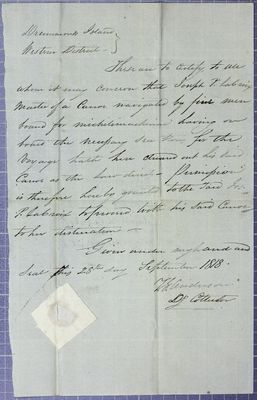 Drummond Island
Western District
These are to Certify to all
whom it may concern that Joseph
Master of a Canoe navigated by five men
bound for michilimackinac having on
board the necessary sea for the
Voyage hath here cleared out his said
Canoe as the Law directs Permission
is therefore hereby granted to the said
to proceed with his said Canoe
to her destination
Given under my hand and
Seal this 28th day September 1818.
Anderson
Dy Collector